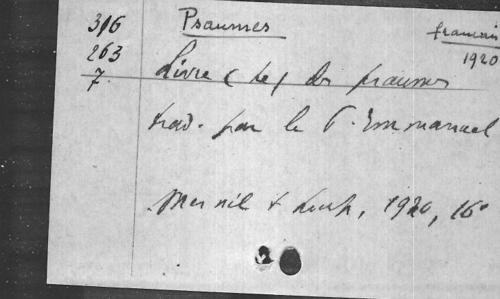 316
263
7.
Psaumes
français
1920
Livre (le) des psaumes
trad. par le P. Emmanuel
Mesnil St Loup, 1920, 16°